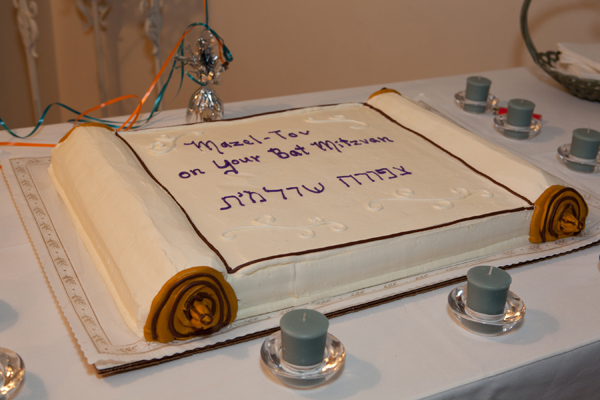 Mazel-Tov
on Your Bat Mitzvah
צפורה שולמית